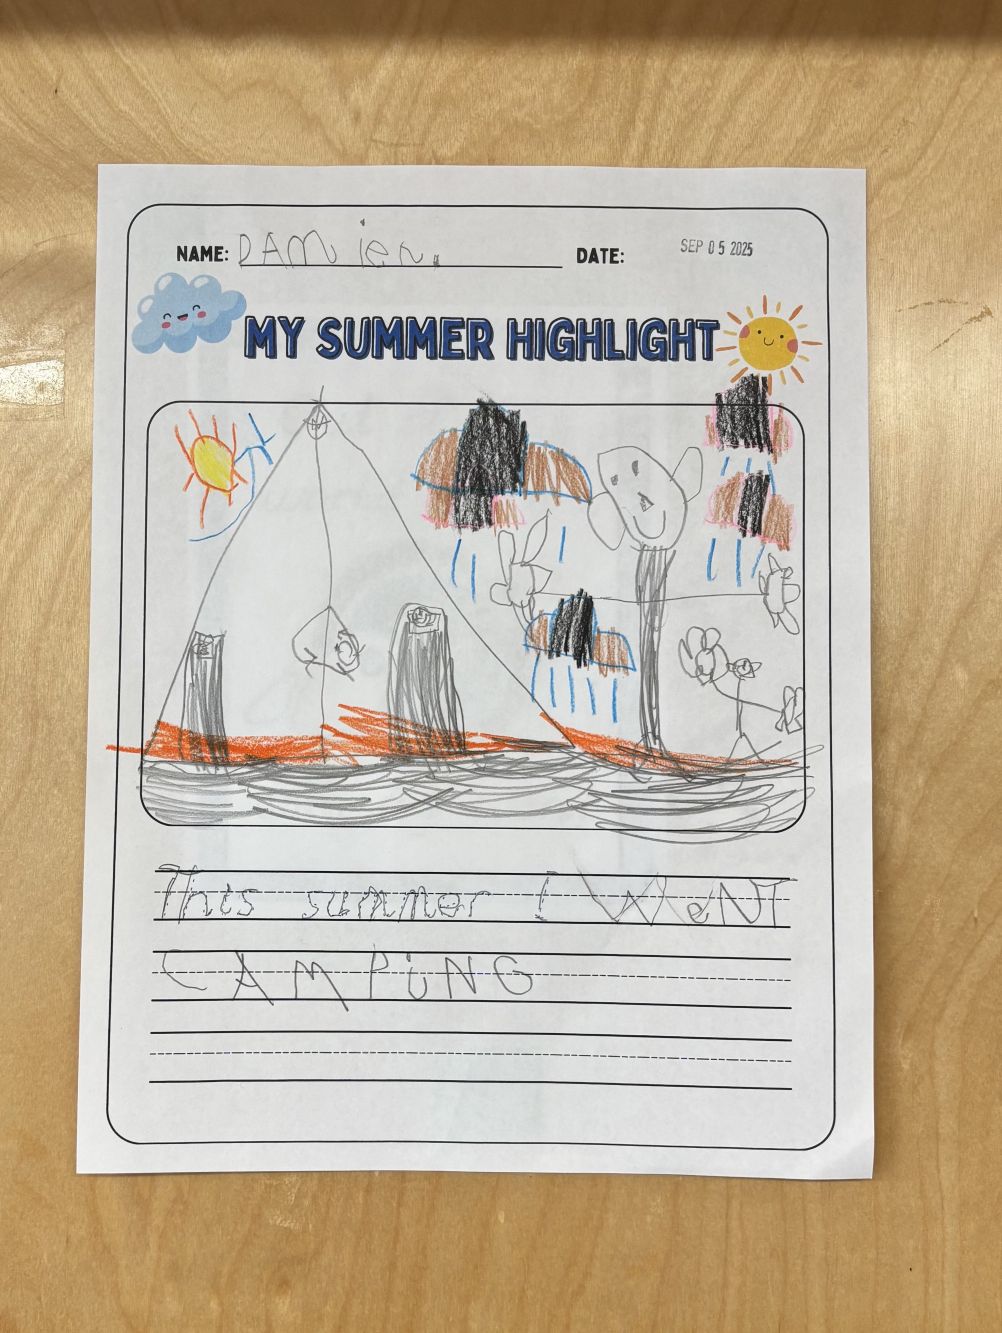 NAME: DAMien. DATE: SEP 05 2025
MY SUMMER HIGHLIGHT
This summer I WeNT
CAMPiNG